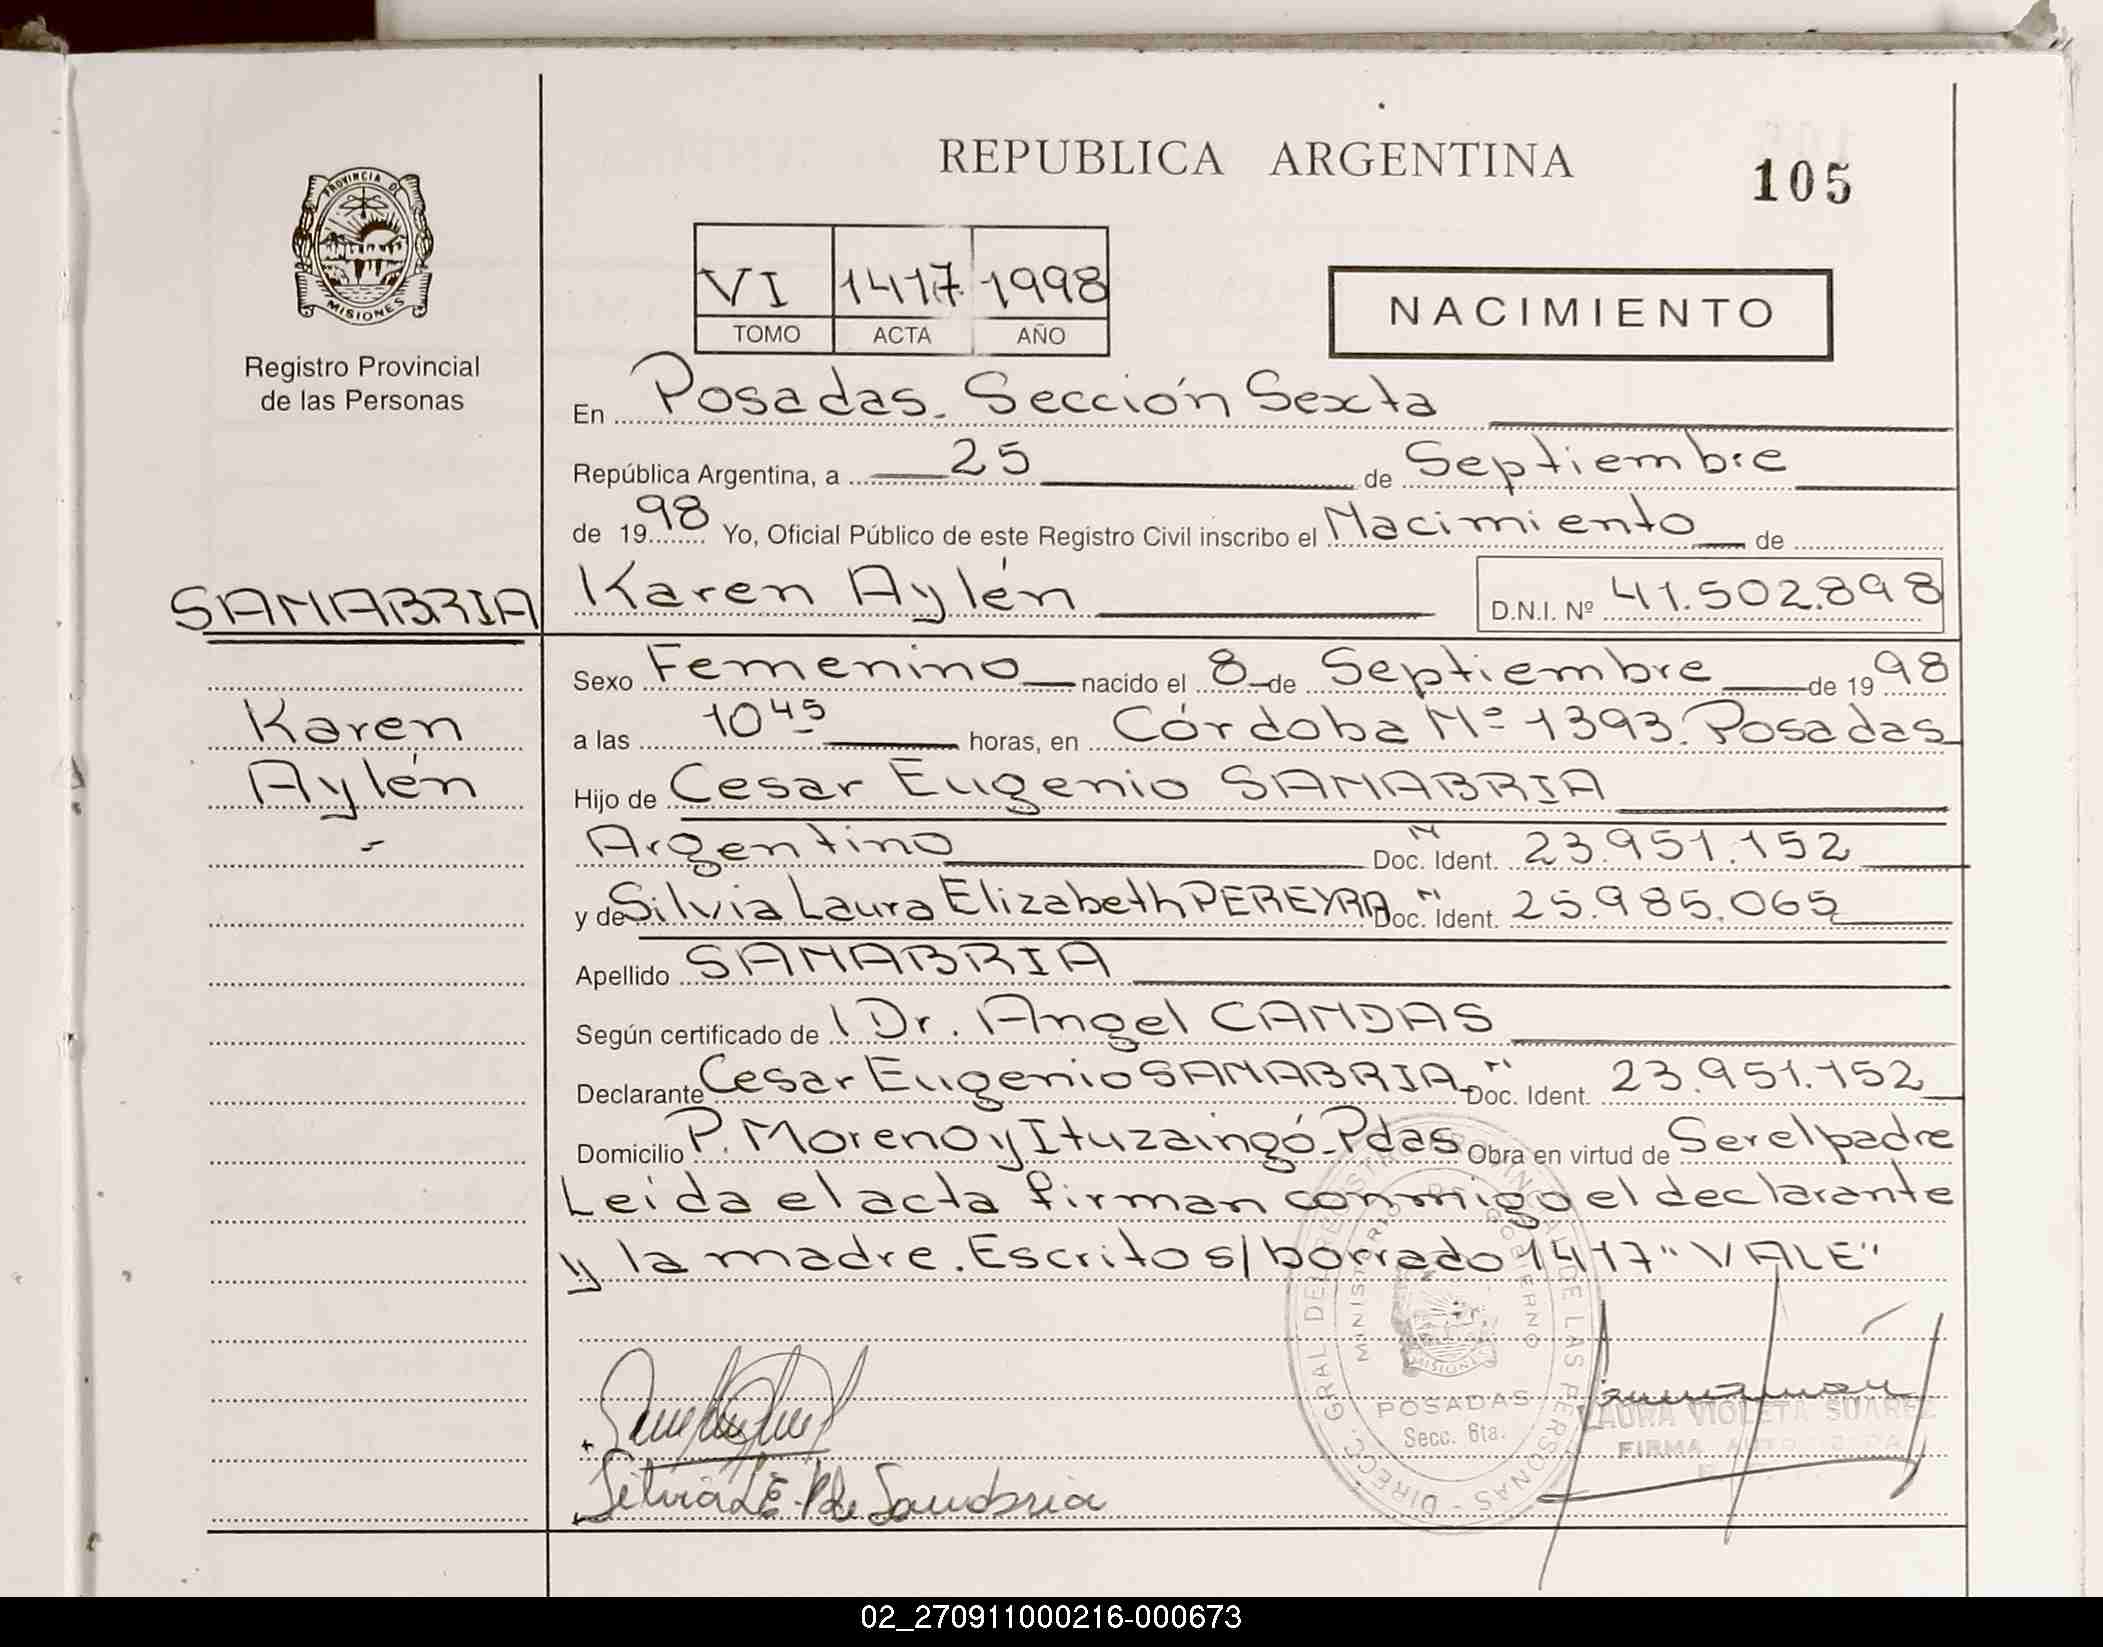 REPUBLICA ARGENTINA
105
PROVINCIA DE
MISIONES
Registro Provincial
de las Personas
VI 1417 1998
TOMO ACTA AÑO
NACIMIENTO
En Posadas. Sección Sexta
República Argentina, a 25 de Septiembre
de 1998 Yo, Oficial Público de este Registro Civil inscribo el Nacimiento de
SANABRIA
Karen Aylén D.N.I. Nº 41.502.898
Karen
Aylén
Sexo Femenino nacido el 8 de Septiembre de 1998
a las 10 45 horas, en Córdoba Nº 1393. Posadas
Hijo de Cesar Eugenio SANABRIA
Argentino Doc. Ident. N 23.951.152
y de Silvia Laura Elizabeth PEREYRA Doc. Ident. N 25.985.065
Apellido SANABRIA
Según certificado de Dr. Angel CANDAS
Declarante Cesar Eugenio SANABRIA Doc. Ident. N 23.951.152
Domicilio P. Moreno y Ituzaingó. Pdas Obra en virtud de Ser el padre
Leida el acta firman conmigo el declarante
y la madre. Escrito s/borrado 1417 "VALE"
DIRECC. GRAL DEL REGISTRO PROVINCIAL DE LAS PERSONAS
MINISTERIO DE GOBIERNO
MISIONES
POSADAS
Secc. 6ta.
LAURA VIOLETA SUAREZ
FIRMA AUTORIZADA
Silvia L E. P de Sanabria
02_270911000216-000673